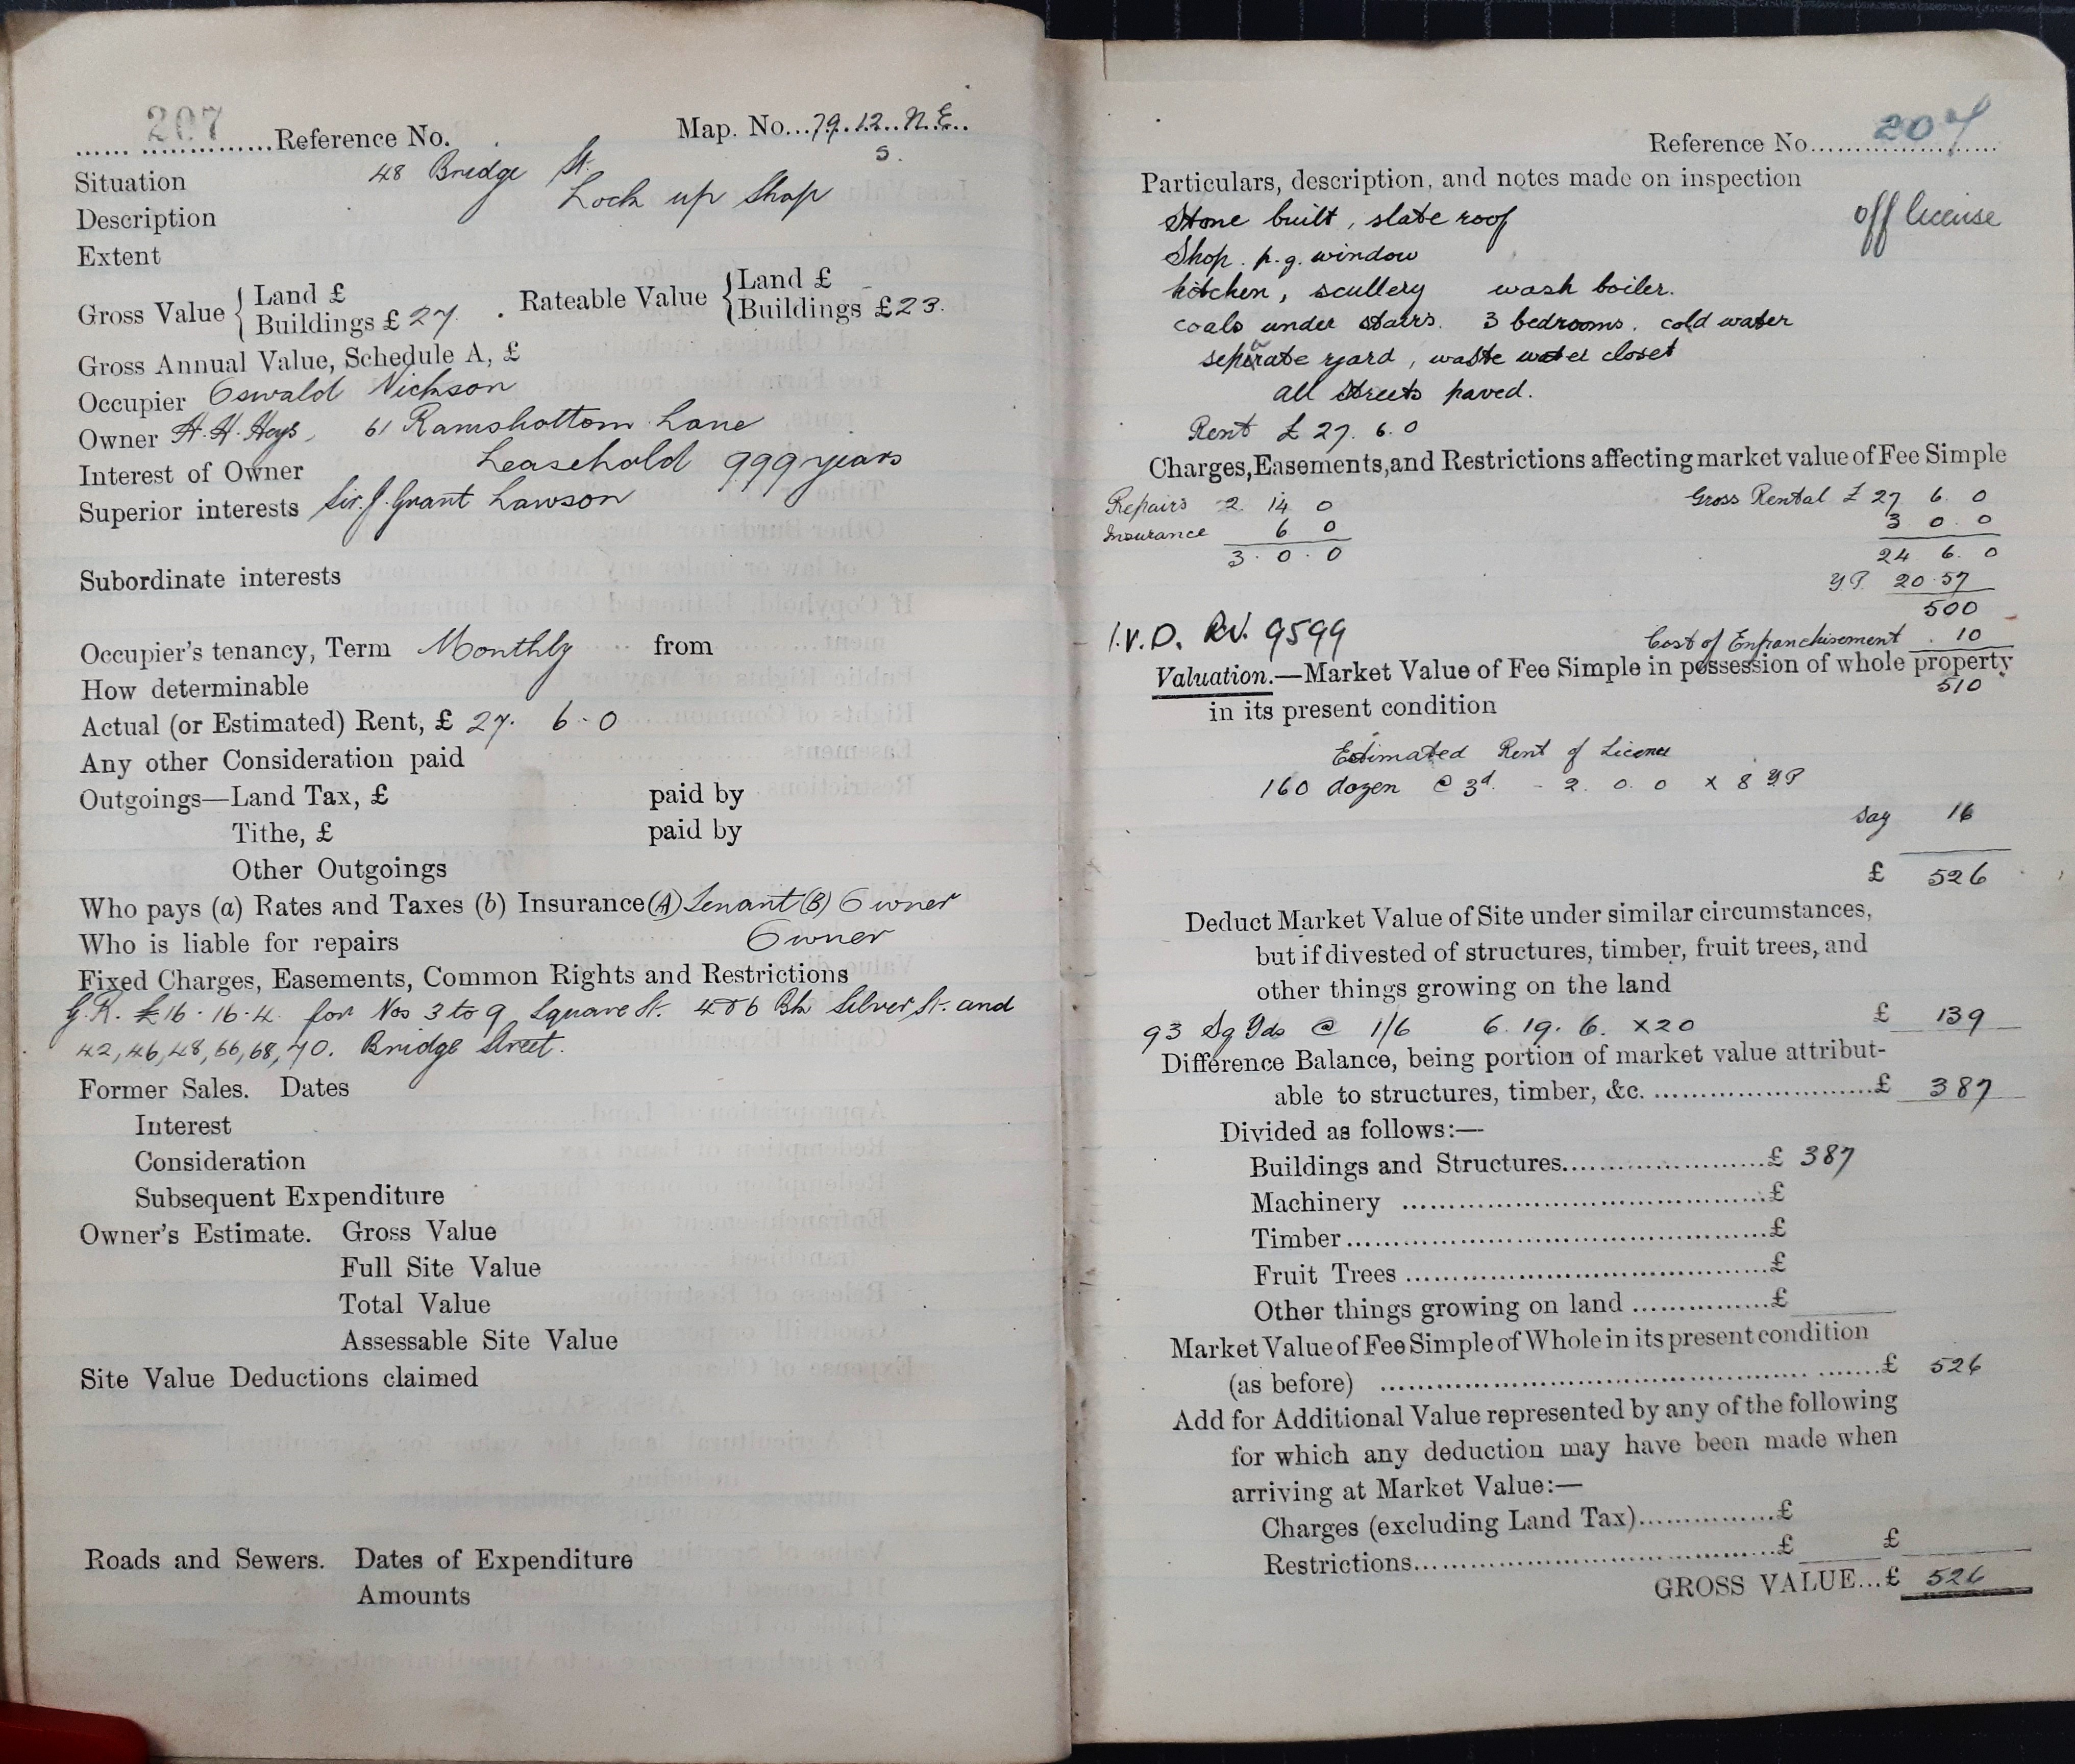 207 Reference No. Map. No...79.12. N.E.
S.
Situation 48 Bridge St.
Description Lock up Shop
Extent
Gross Value { Land £
Buildings £27. Rateable Value { Land £ -
Buildings £23.
Gross Annual Value, Schedule A, £
Occupier Oswald Nickson
Owner H.H. Heys, 61 Ramsbottom Lane
Interest of Owner Leasehold 999 years
Superior interests Sir. J. Grant Lawson
Subordinate interests
Occupier's tenancy, Term Monthly from
How determinable
Actual (or Estimated) Rent, £ 27. 6-0
Any other Consideration paid
Outgoings—Land Tax, £ paid by
Tithe, £ paid by
Other Outgoings
Who pays (a) Rates and Taxes (b) Insurance (A) Tenant (B) Owner
Who is liable for repairs Owner
Fixed Charges, Easements, Common Rights and Restrictions
G.R. £16-16-4 for Nos 3 to 9 Square St. 4 & 6 Bk Silver St. and
42, 46, 48, 66, 68, 70. Bridge Street.
Former Sales. Dates
Interest
Consideration
Subsequent Expenditure
Owner's Estimate. Gross Value
Full Site Value
Total Value
Assessable Site Value
Site Value Deductions claimed
Roads and Sewers. Dates of Expenditure
Amounts
Reference No. 207
Particulars, description, and notes made on inspection
Stone built, slate roof off license
Shop. p.g. window
kitchen, scullery wash boiler.
coals under stairs. 3 bedrooms. cold water
separate yard, waste water closet
all streets paved.
Rent £27. 6. 0
Charges, Easements, and Restrictions affecting market value of Fee Simple
Repairs 2 14 0 Gross Rental £ 27 6. 0
Insurance 6 0 3 0. 0
3. 0. 0 24 6. 0
YP. 20.57
500
I.V.D. RV. 9599 Cost of Enfranchisement 10
Valuation.—Market Value of Fee Simple in possession of whole property
510
in its present condition
Estimated Rent of Licence
160 dozen @ 3d. - 2. 0. 0 x 8 YP
Say 16
£ 526
Deduct Market Value of Site under similar circumstances,
but if divested of structures, timber, fruit trees, and
other things growing on the land
93 Sq Yds @ 1/6 6. 19. 6. x20 £ 139
Difference Balance, being portion of market value attribut-
able to structures, timber, &c. £ 387
Divided as follows:—
Buildings and Structures £ 387
Machinery £
Timber £
Fruit Trees £
Other things growing on land £
Market Value of Fee Simple of Whole in its present condition
(as before) £ 526
Add for Additional Value represented by any of the following
for which any deduction may have been made when
arriving at Market Value:—
Charges (excluding Land Tax) £
Restrictions £ £
GROSS VALUE...£ 526